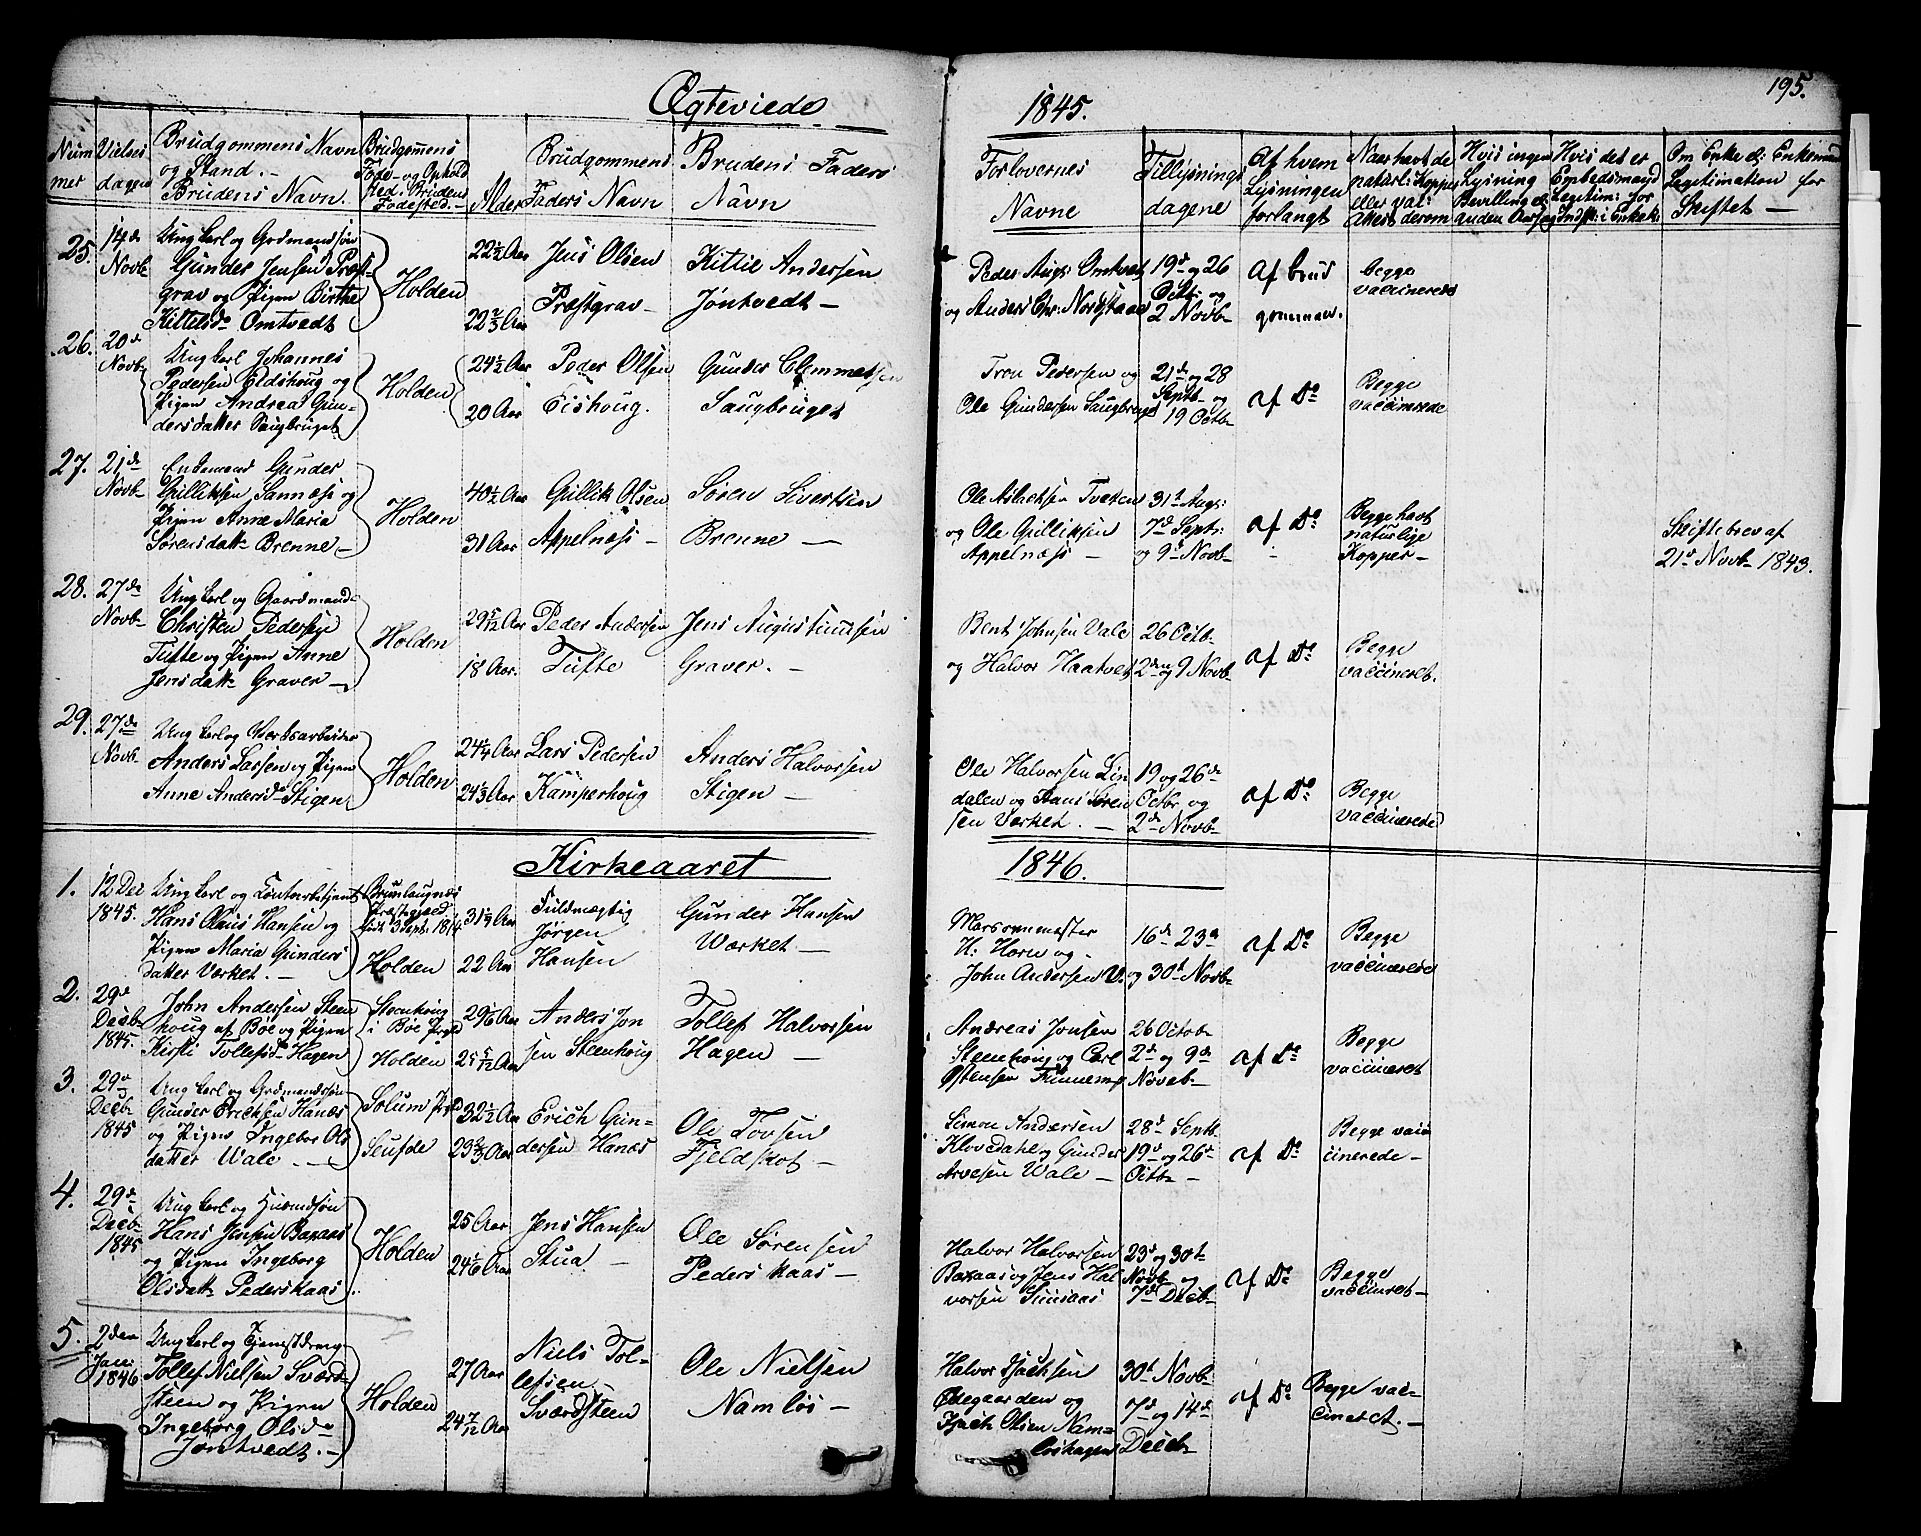 195.
Ægteviede
1845.
Num
mer
Vielses
dagen
Brudgommens Navn
og Stand. -
Brudens Navn.
Brudgomens
Føde- og Ophold
sted. Bruden
Fødested. -
Alder
Brudgommens
Faders Navn
Brudens Faders
Navn
Forlovernes
Navne
Tillysnings
dagene
Af hvem
Lysningen
forlangt
Naar havt de
naturl: Kopper
eller vac:
Attest derom
Hvis ingen
Lysning
Bevilling el:
anden Aarsag
Hvis det er
Enkemand
Legitim: for
Indst: i Enkek:
Om Enke el: Enkemand
Legitimation for
Skiftet -
25.
14de
Novb
Ungkarl og Grdmandsøn
Gunder Jensen Præst-
grav og Pigen Birthe
Kittelsd. Omtvedt
Holden
22½ Aar
22⅔ Aar
Jens Olsen
Præstgrav -
Kittil Andersen
Jøntvedt -
Peder Augs: Omtvet
og Anders Chr: Nordstaae
19d og 26
Octb: og
2 Novb
Af brud
gommen.
begge
vaccinerede
26.
20de
Novb
Ungkarl Johannes
Pedersen Eidshoug og
Pigen Andrea Gun-
dersdatter Saugbruget
Holden
24½ Aar
20 Aar
Peder Olsen
Eishoug.
Gunder Clemmetsen
Saugbruget
Tron Pedersen og
Ole Gundersen Saugbruget
21de og 28
Septb og
19 Octb
af Do
Begge
vaccinerede
27.
21de
Novb
Enkemand Gunder
Gulliksen Sannæss og
Pigen Anne Maria
Sørensdatt. Brenne -
Holden
40½ Aar
31 Aar
Gullik Olsen
Appelnæss -
Søren Sivertsen
Brenne -
Ole Aslachsen Tveten
og Ole Gulliksen
Appelnæss -
31t Aug:
7d Septr:
og 9d Novb
af Do
Begge havt
naturlige
Kopper -
Skiftebrev af
21d Novb 1843.
28.
27de
Novb
Ungkarl og Gaardmand
Christen Pedersen
Tufte og Pigen Anne
Jensdatt. Graver -
Holden
29 5/12 Aar
18 Aar.
Peder Andersen
Tufte
Jens Augustinusen
Graver. -
Bent Johnsen Vale
og Halvor Haatvet
26 Octb
2den og 9 Novb
af Do
Begge
vaccineret.
29.
27de
Novb
Ungkarl og Værksarbeider
Anders Larsen og Pigen
Anne Andersd. Stigen
Holden
24¼ Aar
24⅔ Aar
Lars Pedersen
Kamperhoug
Anders Halvorsen
Stigen -
Ole Halvorsen Lin
dalen og Hans Søren
sen Værket. -
19 og 26de
Octbr og
2de Novb
af Do
Begge
vaccinerede
Kirkeaaret
1846.
1.
12 Dec
1845.
Ungkarl og Contoirbetjent
Hans Olaus Hansen og
Pigen Maria Gunders
datter Værket. -
Brunlaugnæs
Præstegjeld
født 3 Sept: 1814
Holden
31¼ Aar
22 Aar
Fuldmægtig
Jørgen
Hansen
Gunder Hansen
Værket -
Marsovnmester
H: Horn og
John Andersen V.
16de 23d
og 30t Novb
af Do
Begge
vaccinerede
2.
29de
Decb
1845.
John Andersen Steen
houg af Bøe og Pigen
Kirsti Tollefsd. Hagen
Steenhoug
i Bøe Prgd
Holden
29 1/6 Aar
25 5/12 Aar
Anders Jon
sen Steenhoug
Tollef Halvorsen
Hagen -
Andreas Jonsen
Steenhoug og Carl
Ostensen Finnemp
26 Octob
2de og 9de
Noveb -
af Do
Begge
vaccineret
3.
29d
Decb
1845
Ungkarl og Grdmandssøn
Gunder Erichsen Hanæs
og Pigen Ingebor Ols
datter Wale. -
Solum Prgd
Seufde
32½ Aar
23⅔ Aar
Erich Gun-
dersen Hanæs
Ole Tovsen
Fjeldskot -
Simon Andersen
Klovedahl og Gunder
Arvesen Wale -
28d Septb
19d og 26d
Octb -
af Do
Begge vacc
cinerede -
4.
29d
Decb
1845
Ungkarl og Huusmdsøn
Hans Jensen Baxaas
og Pigen Ingeborg
Olsdatt. Pederskaas.
Holden
25 Aar
24 1/6 Aar
Jens Hansen
Stua -
Ole Sørensen
Pederskaas -
Halvor Halvorsen
Baxaas og Jens Hal
vorsen Simsaas
23d og 30t
Novb og
7d Decb
af Do
Begge
vaccineret -
5.
2den
Jan:
1846
Ungkarl og Tjenstdreng
Tollef Nielsen Sværd
steen og Pigen
Ingeborg Olsd.
Jontvedt. -
Holden
27 Aar
24 7/12 Aar
Niels Tol-
lefsen -
Sværdsteen
Ole Nielsen
Namløs -
Halvor Isachsen
Ødegaarden og
Isach Olsen Nam-
løshagen
30t Novb
7d og 14d
Decb
af Do
Begge vac-
cineret. -